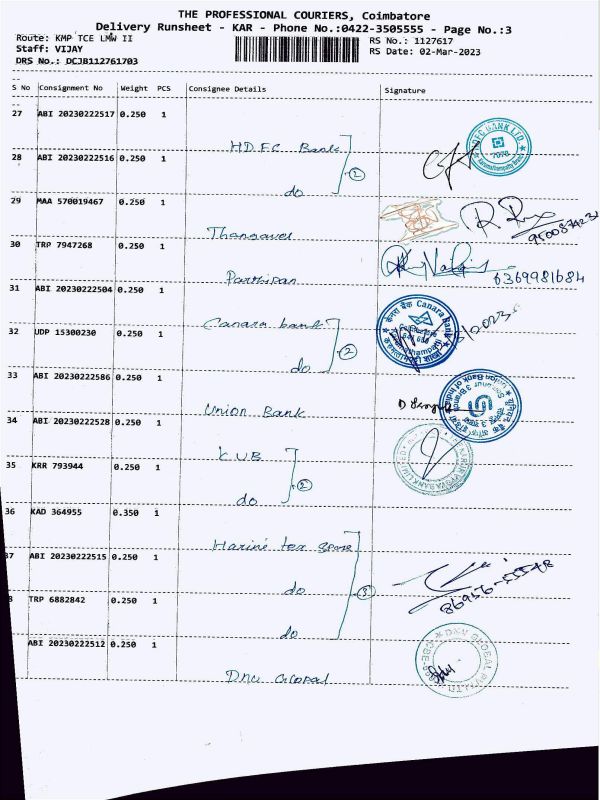 THE PROFESSIONAL COURIERS, Coimbatore
Delivery Runsheet - KAR - Phone No.:0422-3505555 - Page No.:3
Route: KMP TCE LMW II
RS No.: 1127617
Staff: VIJAY
RS Date: 02-Mar-2023
DRS No.: DCJB112761703
S No Consignment No Weight PCS Consignee Details Signature
27 ABI 20230222517 0.250 1
HDFC Bank
HDFC BANK LTD.
28 ABI 20230222516 0.250 1
2
do
29 MAA 570019467 0.250 1
30 TRP 7947268 0.250 1
Parthipan
6369981684
31 ABI 20230222504 0.250 1
Canara bank
Canara Bank
32 UDP 15300230 0.250 1
2
do
33 ABI 20230222586 0.250 1
Union Bank
Union Bank of India
34 ABI 20230222528 0.250 1
KUB
KARUR VYSYA BANK LIMITED
35 KRR 793944 0.250 1
2
do
36 KAD 364955 0.350 1
37 ABI 20230222515 0.250 1
do
3
8 TRP 6882842 0.250 1
do
ABI 20230222512 0.250 1